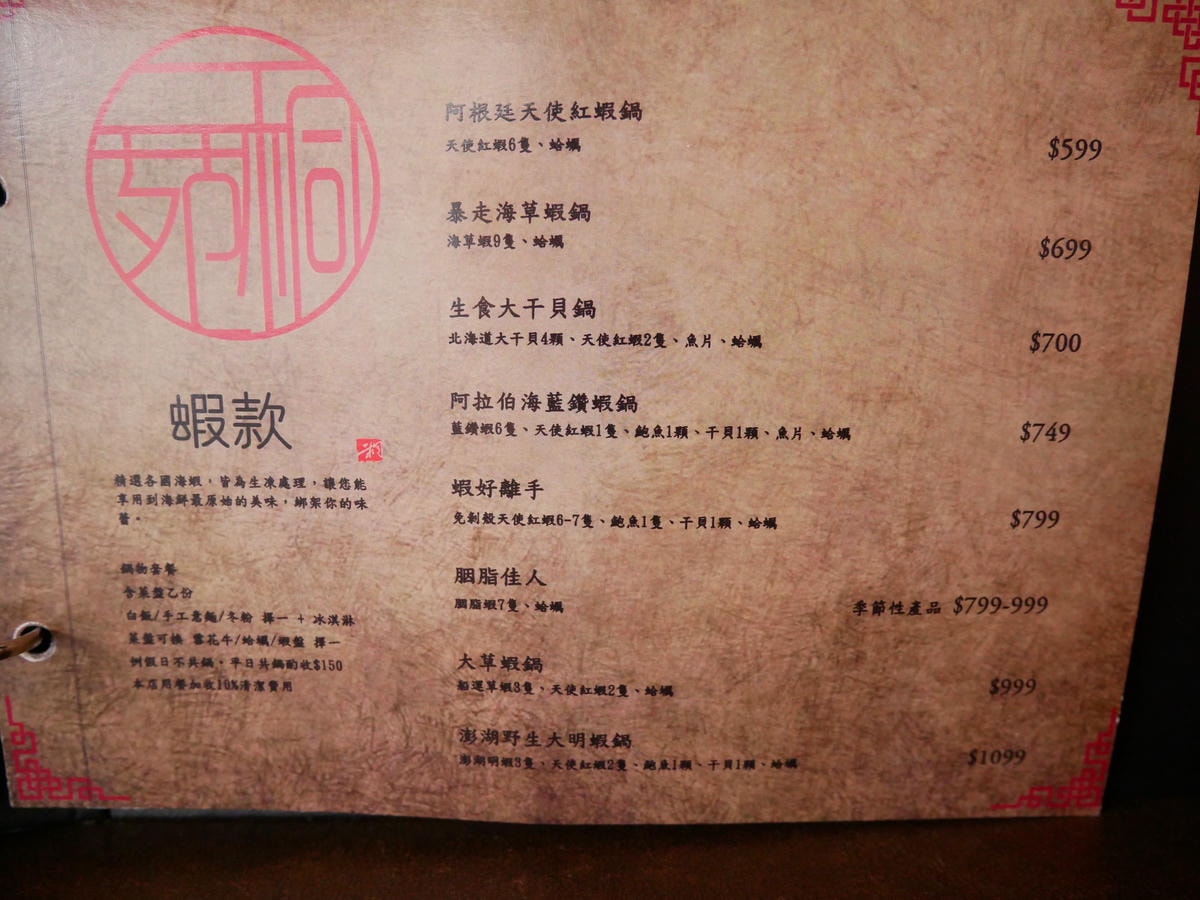 蝦款
精選各國海蝦，皆為生凍處理，讓您能
享用到海鮮最原始的美味，綁架你的味
蕾。
鍋物套餐
含菜盤乙份
白飯/手工意麵/冬粉 擇一 + 冰淇淋
菜盤可換 雪花牛/蛤蠣/蝦盤 擇一
例假日不共鍋，平日共鍋酌收$150
本店用餐加收10%清潔費用
阿根廷天使紅蝦鍋
天使紅蝦6隻、蛤蠣 $599
暴走海草蝦鍋
海草蝦9隻、蛤蠣 $699
生食大干貝鍋
北海道大干貝4顆、天使紅蝦2隻、魚片、蛤蠣 $700
阿拉伯海藍鑽蝦鍋
藍鑽蝦6隻、天使紅蝦1隻、鮑魚1顆、干貝1顆、魚片、蛤蠣 $749
蝦好離手
免剝殼天使紅蝦6-7隻、鮑魚1隻、干貝1顆、蛤蠣 $799
胭脂佳人
胭脂蝦7隻、蛤蠣 季節性產品 $799-999
大草蝦鍋
船選草蝦3隻、天使紅蝦2隻、蛤蠣 $999
澎湖野生大明蝦鍋
澎湖明蝦3隻、天使紅蝦2隻、鮑魚1顆、干貝1顆、蛤蠣 $1099